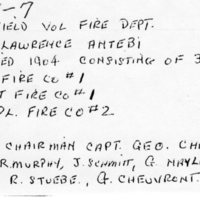 -7
IELD VOL FIRE DEPT.
LAWRENCE ANTEBI
ED 1904 CONSISTING OF 3
FIRE CO #1
T FIRE CO #1
OL. FIRE CO #2
CHAIRMAN CAPT. GEO. CH
R. MURPHY, J. SCHMITT, G. NAYL
R. STUEBE., G. CHEUVRONT.